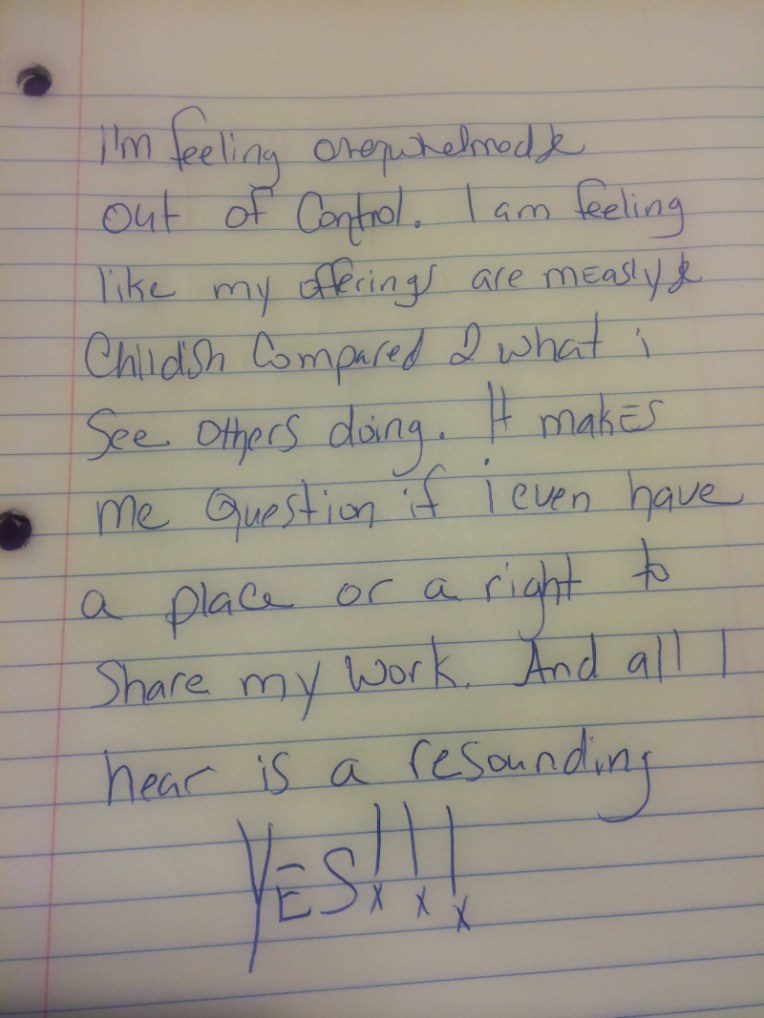 I'm feeling overwhelmed &
out of Control. I am feeling
like my offerings are measly &
Childish Compared 2 what i
See others doing. It makes
me Question if i even have
a place or a right to
Share my Work. And all I
hear is a resounding
YES!!!